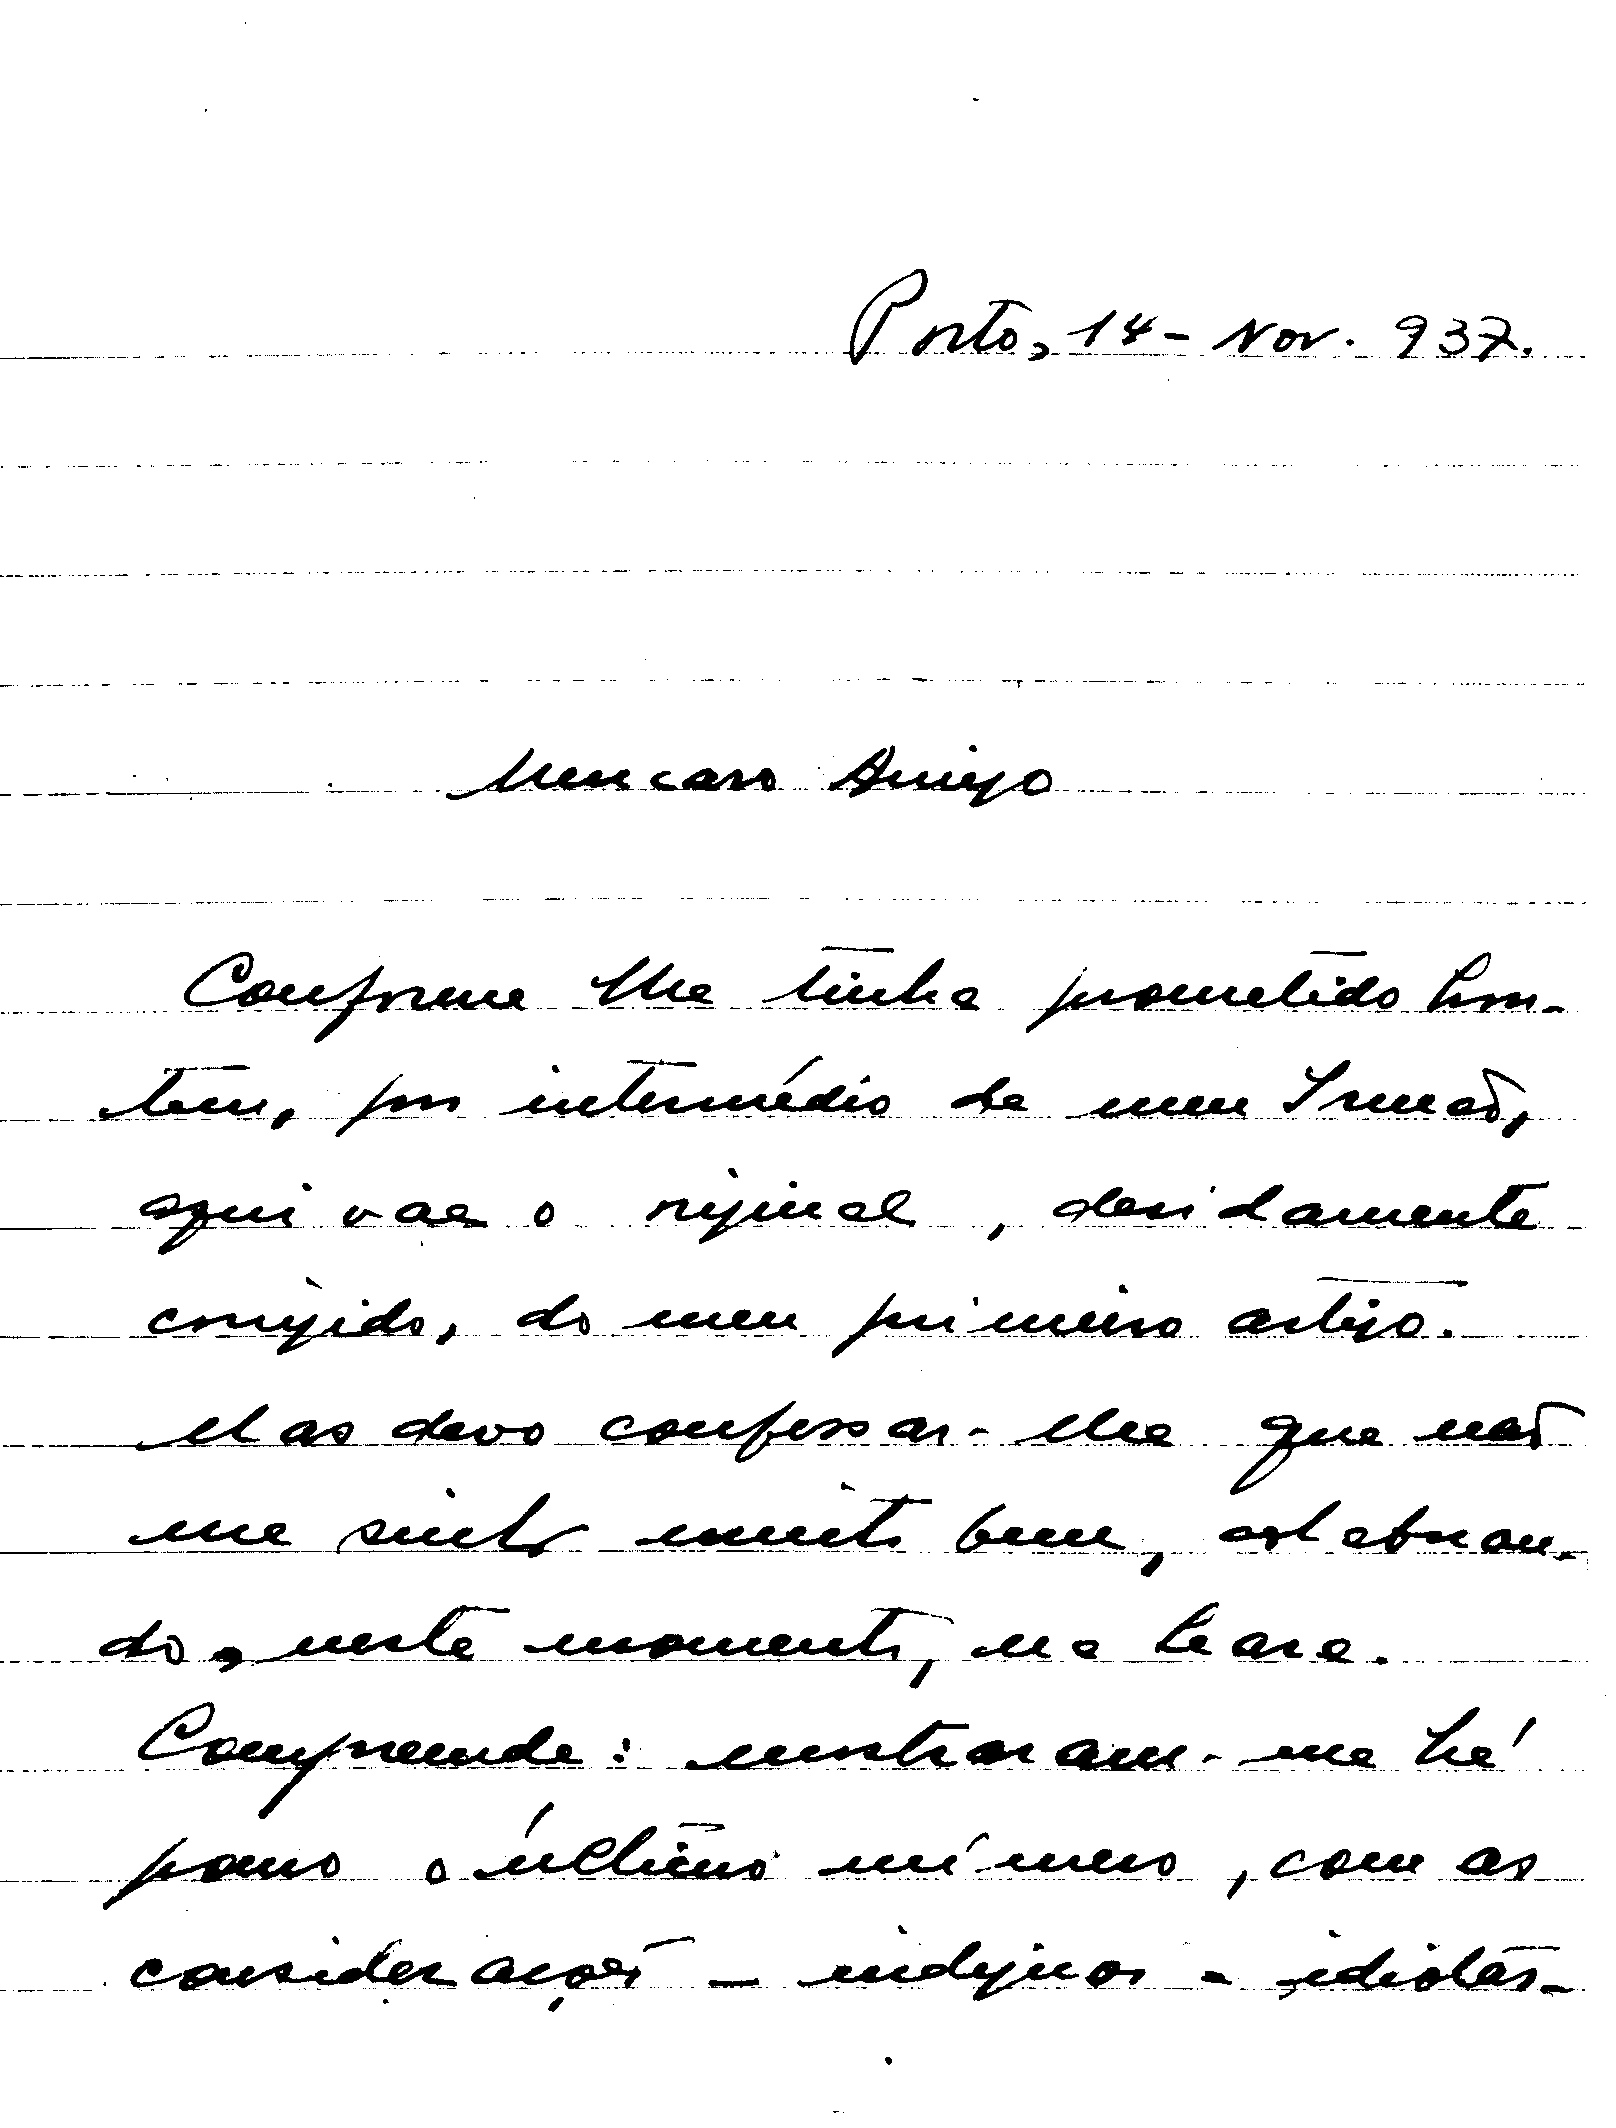 Porto, 14 - Nov. 937.
Meu caro Amigo
Conforme lhe tinha prometido hon-
tem, por intermédio de meu Irmão,
aqui vae o orijinal, devidamente
corrijido, do meu primeiro artigo.
Mas devo confessar-lhe que não
me sinto muito bem, colaboran-
do, neste momento, na Seara.
Compreende: mostraram-me há
pouco o último número, com as
considerações - indignas - idiotas -